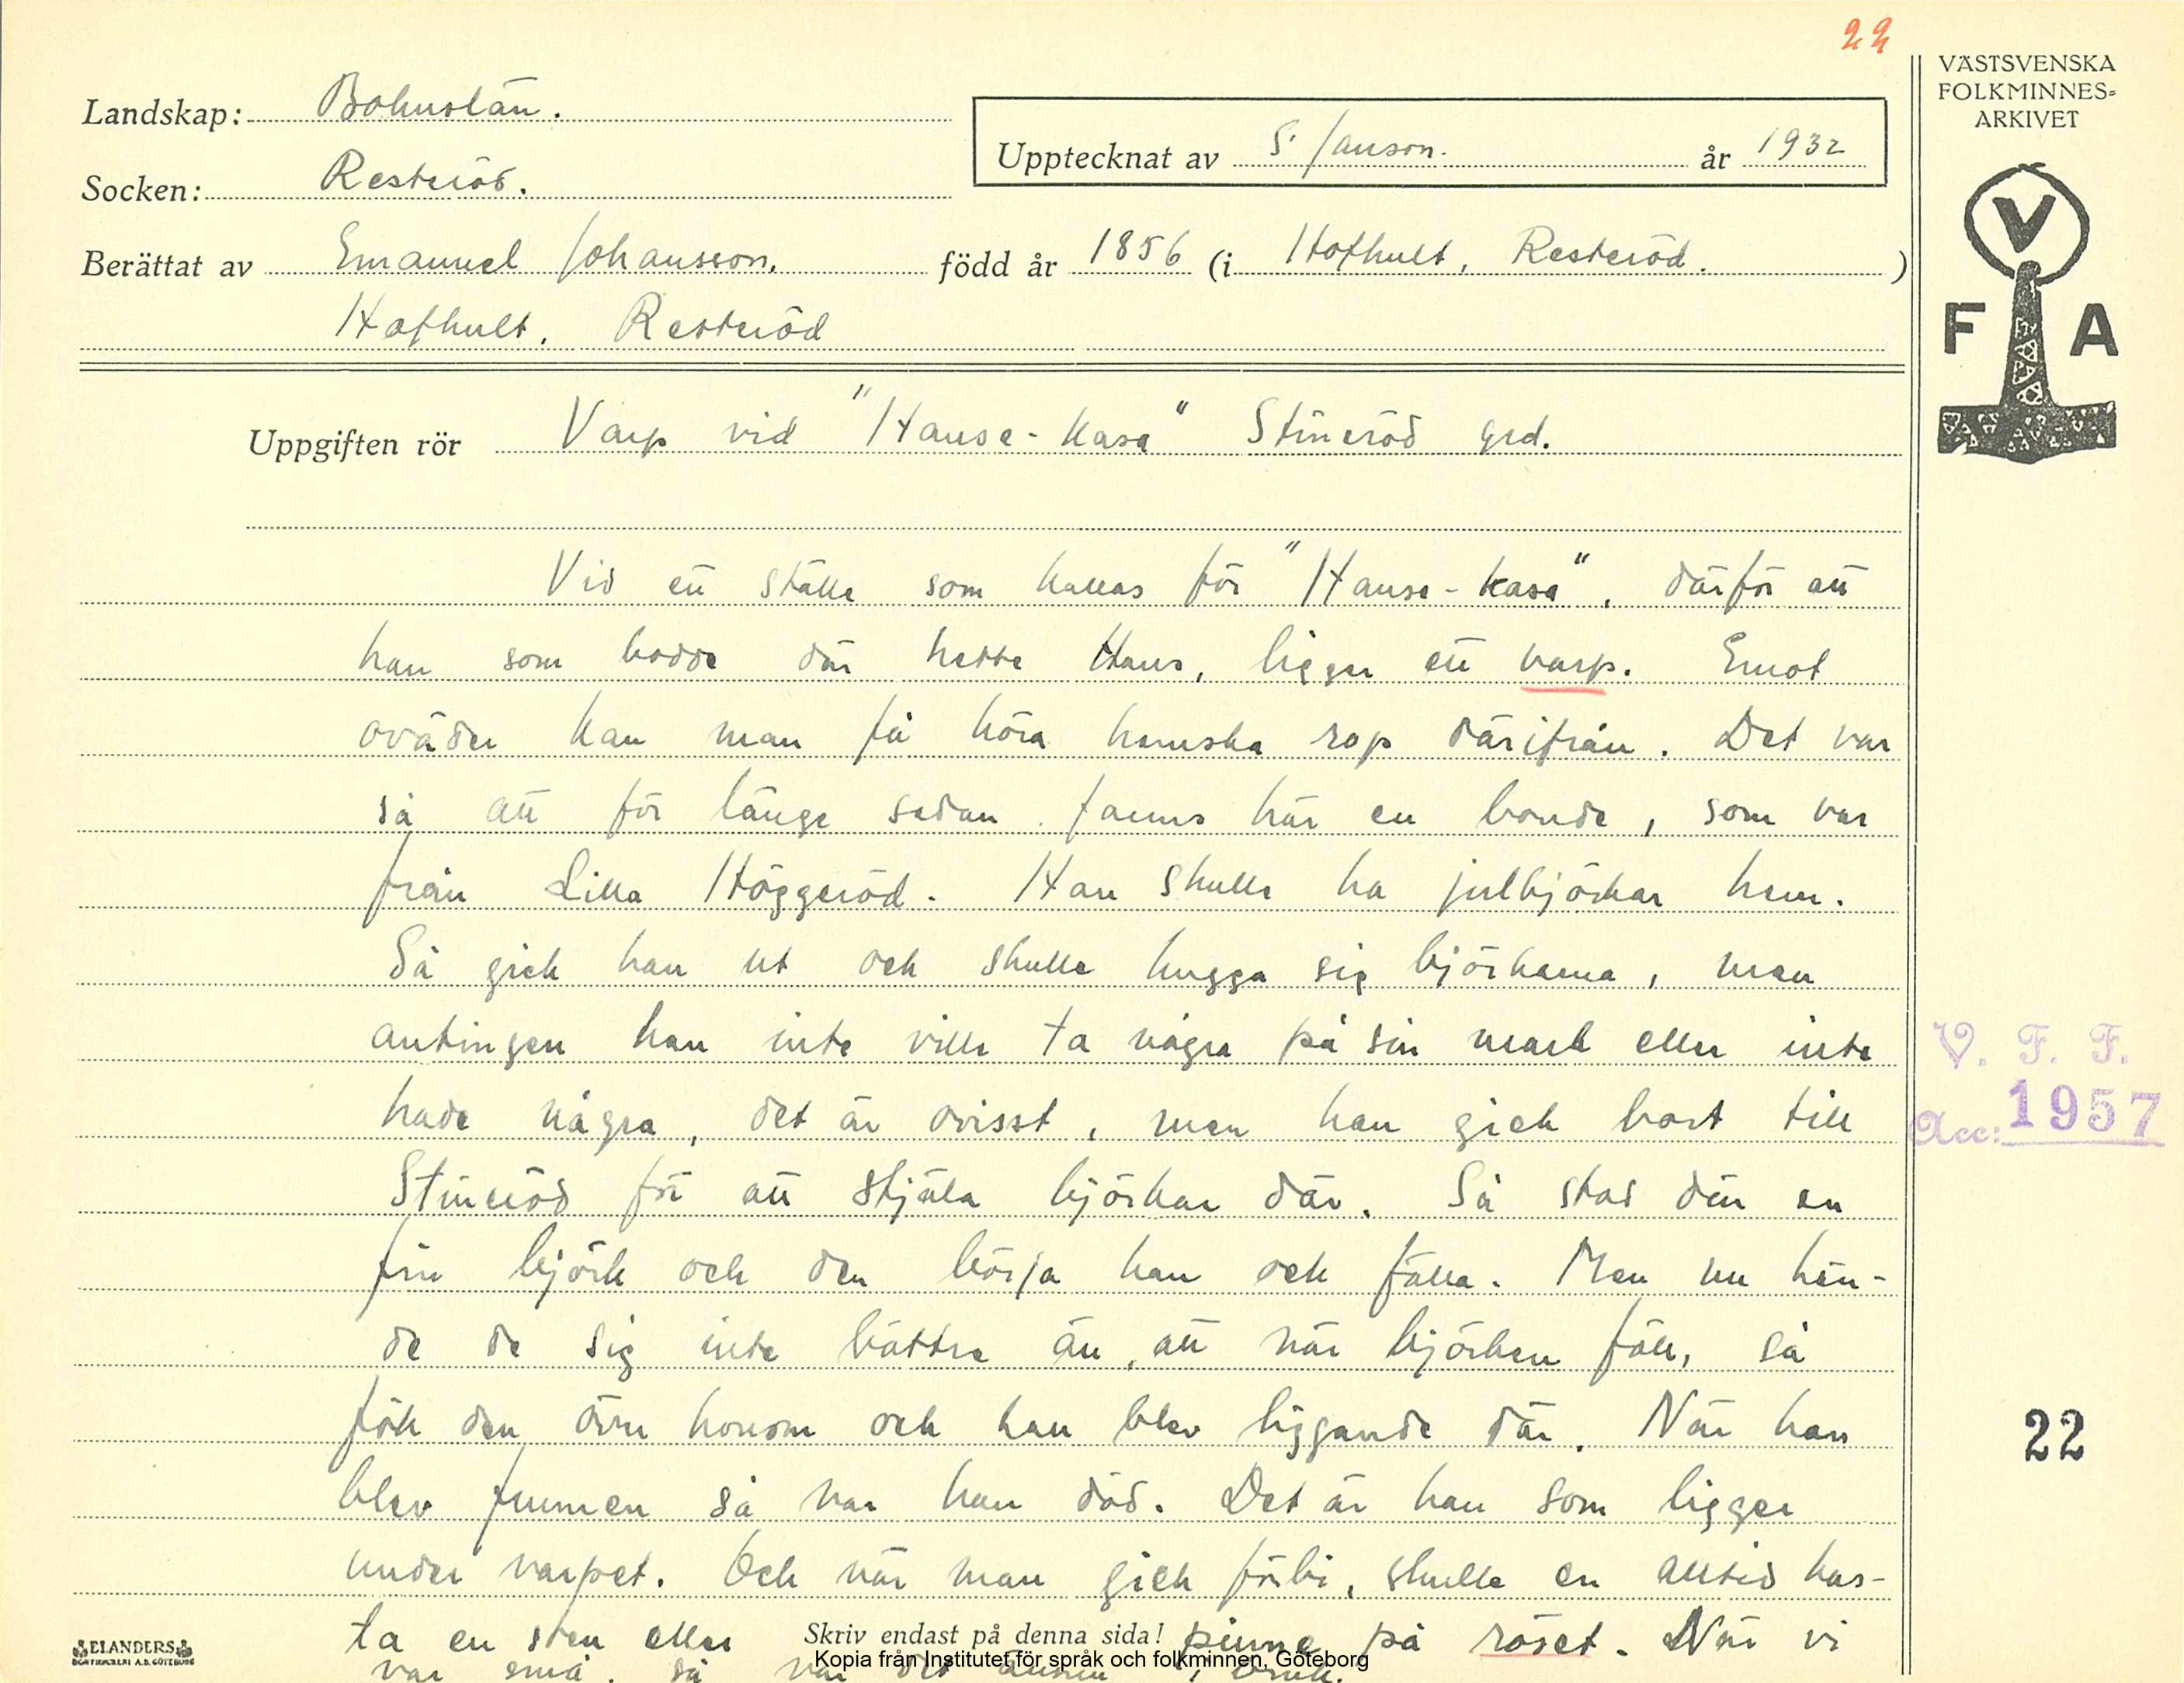 22
VÄSTSVENSKA
FOLKMINNES-
ARKIVET
Landskap: Bohuslän.
Upptecknat av S. Janson. år 1932
Socken: Resteröd.
Berättat av Emanuel Johansson. född år 1856 (i Hofhult, Resteröd.)
Hofhult, Resteröd
V
F A
Uppgiften rör Varp vid "Hanse-kasa" Stineröd grd.
Vid ett ställe som kallas för "Hanse-kasa", därför att
han som bodde där hette Hans, ligger ett varp. Emot
oväder kan man få höra hemska rop därifrån. Det var
så att för länge sedan fanns här en bonde, som var
från Lilla Höggeröd. Han skulle ha julbjörkar hem.
Så gick han ut och skulle hugga sig björkarna, men
antingen han inte ville ta några på sin mark eller inte
hade några, det är ovisst, men han gick bort till
Stineröd för att stjäla björkar där. Så stod där en
fin björk och den börja han och fälla. Men nu hän-
de de sig inte bättre än, att när björken föll, så
föll den övre honom och han blev liggande där. När han
blev funnen så var han död. Det är han som ligger
under varpet. Och när man gick förbi, skulle en alltid kas-
ta en sten eller pinne på röset. När vi
var små, så var det ännu i bruk.
V. F. F.
Acc: 1957
22
ELANDERS
BOKTRYCKERI A.B. GÖTEBORG
Skriv endast på denna sida!
Kopia från Institutet för språk och folkminnen, Göteborg